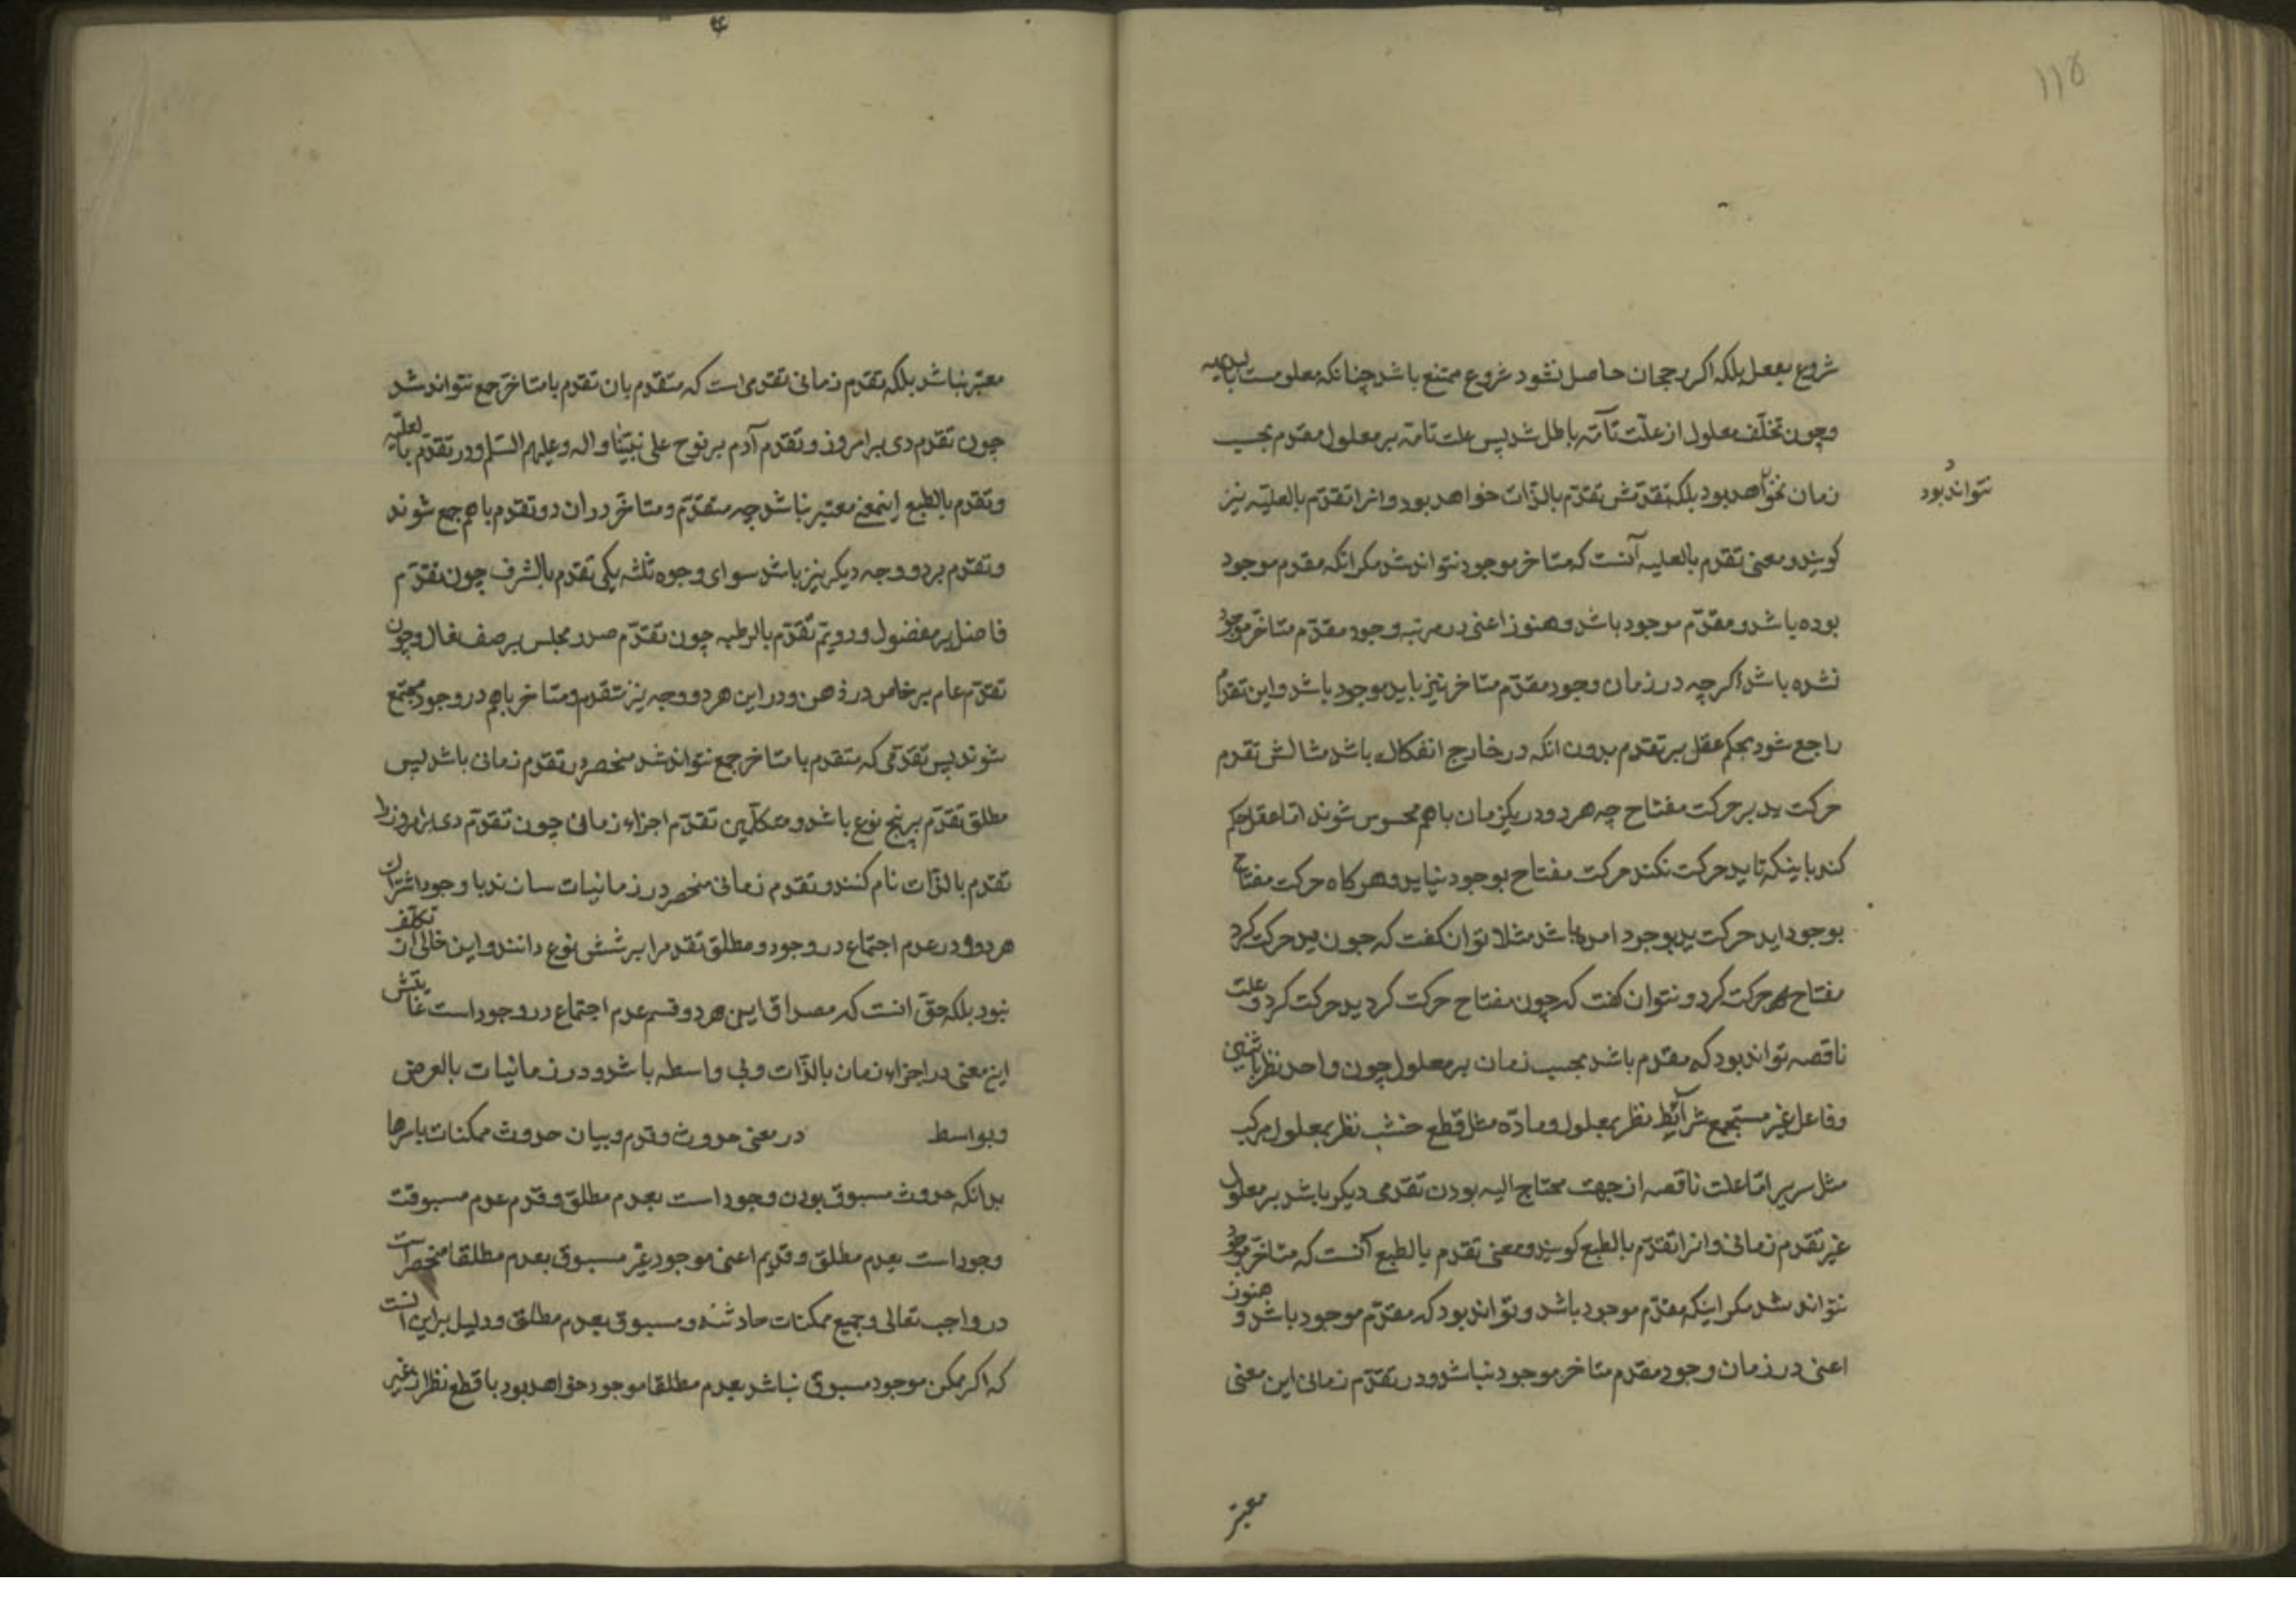 ۱۱۵
شروع بفعل بلکه اکر رجحان حاصل نشود شروع ممتنع باشد چنانکه معلومست بالبدیهه
وچون تخلّف معلول از علّت تامّه باطل شد پس علت تامّه بر معلول مقدم بحسب
زمان نخواهد بود بلکه تقدمش تقدّم بالذّات خواهد بود وانرا تقدّم بالعلیّه نیز
نتواند بود
کویند ومعنی تقدم بالعلیه آنست که متاخر موجود نتواند شد مکر انکه مقدم موجود
بوده باشد ومقدّم موجود باشد وهنوز اعنی در مرتبه وجود مقدّم متاخّر موجود
نشده باشد اکرچه در زمان وجود مقدّم متاخر نیز باید موجود باشد واین تقدّم
راجع شود بحکم عقل بر تقدم بدون انکه در خارج انفکاک باشد مثالش تقدم
حرکت ید بر حرکت مفتاح چه هر دو در یکزمان باهم محسوس شوند امّا عقل حکم
کند باینکه تا ید حرکت نکند حرکت مفتاح بوجود نیاید وهرکاه حرکت مفتاح
بوجود اید حرکت ید بوجود امده باشد مثلا توان کفت که چون ید حرکت کرد
مفتاح حرکت کرد ونتوان کفت که چون مفتاح حرکت کرد ید حرکت کرد وعلت
ناقصه تواند بود که مقدم باشد بحسب زمان بر معلول چون واحد نظر باثنین
وفاعل غیر مستجمع شرآئط نظر بمعلول ومادّه مثل قطع خشب نظر بمعلول مرکب
مثل سریر امّا علت ناقصه از جهت محتاج الیه بودن تقدمی دیکر باشد بر معلول
غیر تقدم زمانی وانرا تقدّم بالطبع کویند ومعنی تقدم بالطبع آنست که متاخّر موجود
نتواند شد مکر اینکه مقدّم موجود باشد وتواند بود که مقدّم موجود باشد وهنوز
اعنی در زمان وجود مقدم متاخر موجود نباشد ودر تقدّم زمانی این معنی
معتبر
معتبر نباشد بلکه تقدّم زمانی تقدمی است که متقدم بان تقدم با متاخّر جمع نتواند شد
چون تقدم دی بر امروز وتقدّم آدم بر نوح علی نبیّنا واله وعلیهم السّلم ودر تقدّم بالعلیّه
وتقدم بالطبع اینمعنی معتبر نباشد چه متقدّم ومتاخّر در ان دو تقدم باهم جمع شوند
وتقدّم بر دو وجه دیکر نیز باشد سوای وجوه ثلثه یکی تقدم بالشرف چون تقدّم
فاضل بر مفضول ودویّم تقدّم بالرتبه چون تقدّم صدر مجلس بر صف نعال وچون
تقدّم عام بر خاص در ذهن ودر این هر دو وجه نیز متقدم ومتاخر باهم در وجود مجتمع
شوند پس تقدّمی که متقدم با متاخر جمع نتواند شد منحصر در تقدم زمانی باشد پس
مطلق تقدّم بر پنج نوع باشد ومتکلّمین تقدّم اجزاء زمانی چون تقدّم دی بر امروز را
تقدم بالذّات نام کنند وتقدم زمانی منحصر در زمانیات سازند با وجود اشتراک
هر دو در عدم اجتماع در وجود ومطلق تقدم را بر شش نوع دانند واین خالی از تکلّف
نبود بلکه حقّ انست که مصداق این هر دو قسم عدم اجتماع در وجود است غایتش
این معنی در اجزاء زمان بالذّات وبی واسطه باشد ودر زمانیات بالعرض
وبواسطه در معنی حدوث وقدم وبیان حدوث ممکنات باسرها
بدانکه حدوث مسبوق بودن وجود است بعدم مطلق وقدم عدم مسبوقیت
وجود است بعدم مطلق وقدیم اعنی موجود غیر مسبوق بعدم مطلقا منحصر است
در واجب تعالی وجمیع ممکنات حادثند ومسبوق بعدم مطلق ودلیل بر این انست
که اکر ممکن موجود مسبوق نباشد بعدم مطلقا موجود خواهد بود با قطع نظر از غیر